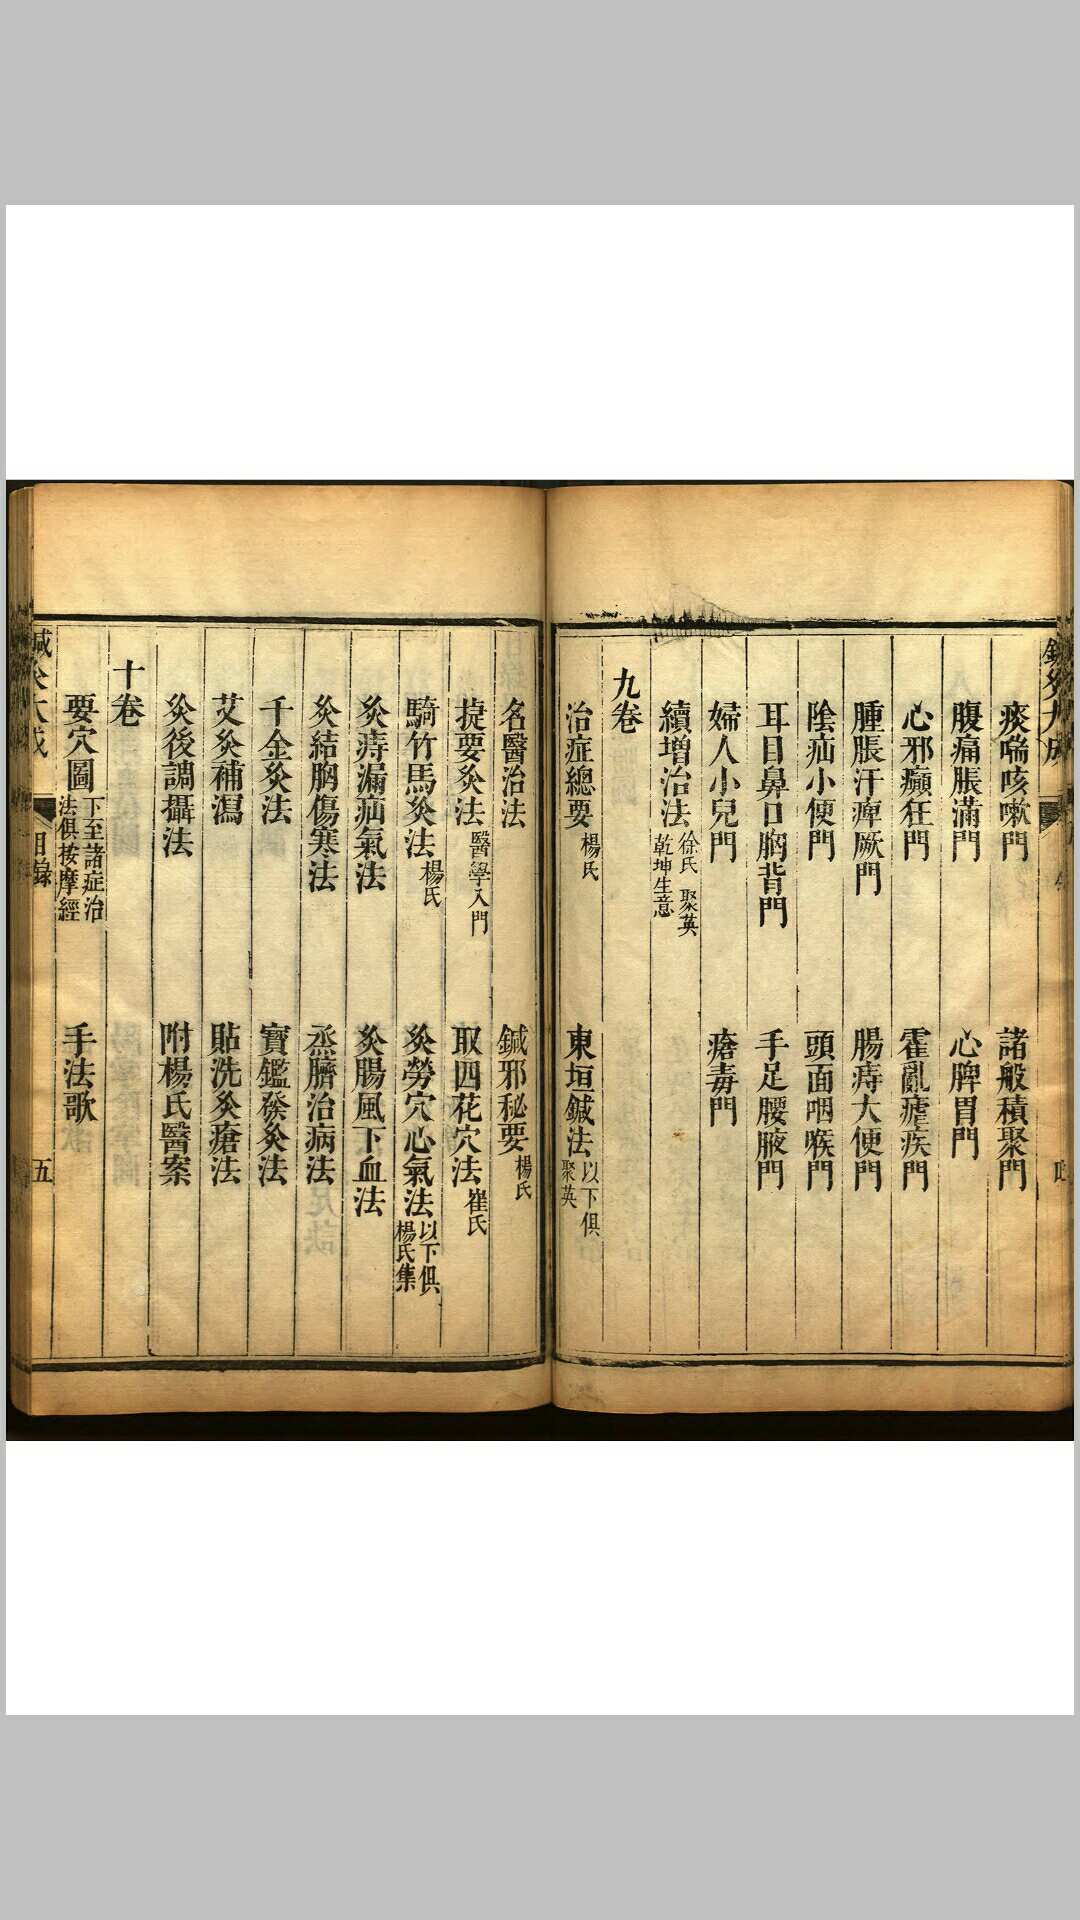 痰喘咳嗽門 諸般積聚門
腹痛脹滿門 心脾胃門
心邪癲狂門 霍亂瘧疾門
腫脹汗痺厥門 腸痔大便門
陰疝小便門 頭面咽喉門
耳目鼻口胸背門 手足腰腋門
婦人小兒門 瘡毒門
續增治法 徐氏 聚英 乾坤生意
九卷
治症總要 楊氏 東垣鍼法 以下俱聚英
名醫治法 鍼邪秘要 楊氏
捷要灸法 醫學入門 取四花穴法 崔氏
騎竹馬灸法 楊氏 灸勞穴心氣法 以下俱楊氏集
灸痔漏疝氣法 灸腸風下血法
灸結胸傷寒法 烝臍治病法
千金灸法 寶鑑發灸法
艾灸補瀉 貼洗灸瘡法
灸後調攝法 附楊氏醫案
十卷
要穴圖 下至諸症治法俱按摩經 手法歌
鍼灸大成 目錄 五